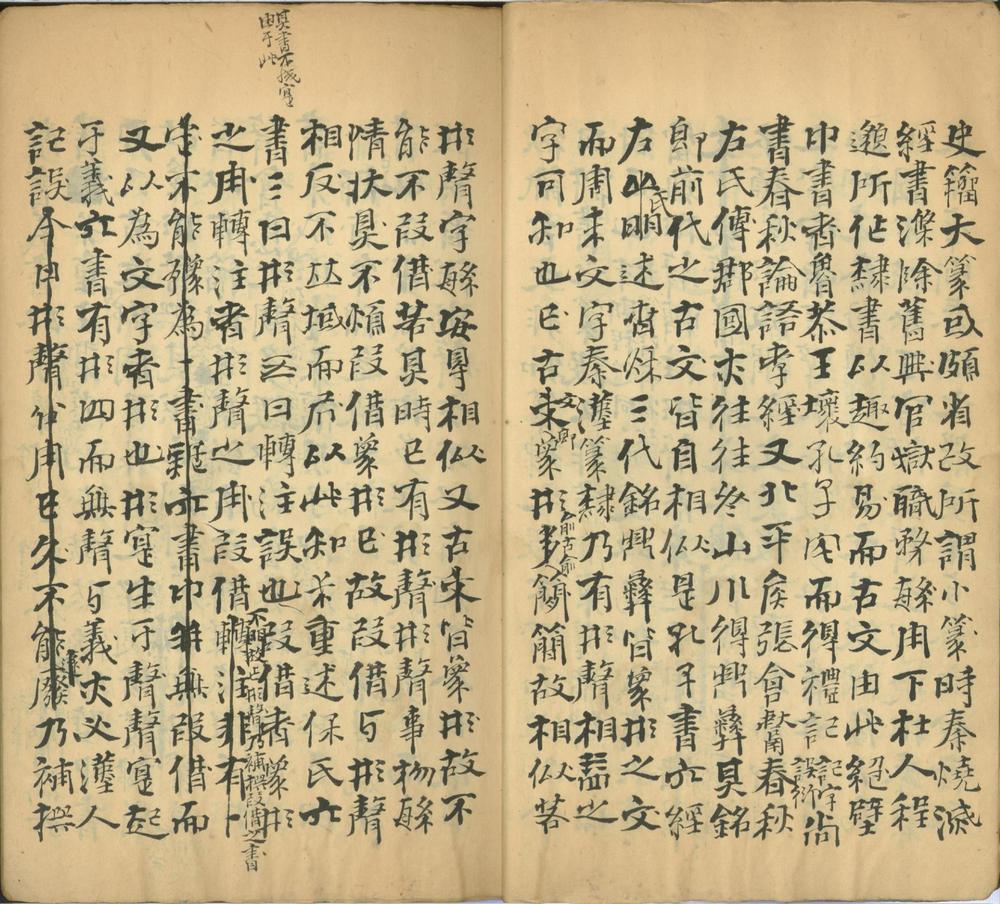 史籒大篆或頗省改所謂小篆時秦燒滅
經書滌除舊典官獄職務緐用下杜人程
邈所作隸書以趣約易而古文由此絕壁
中書者魯恭王壞孔子宅而得禮記記字誤衍尚
書春秋論語孝經又北平矦張倉獻春秋
左氏傳郡國亦往往於山川得鼎彝其銘
即前代之古文皆自相似是孔子書六經
左氏明述春秋三代銘鼎彝皆象形之文
而周末文字秦漢篆隸乃有形聲相益之
字可知也已古文即象形前古前簡簡故相似若
形聲字緐安得相似又古來皆象形故不
能不叚借若其時已有形聲形聲事物緐
情狀具不煩叚借象形已故叚借與形聲
相反不並域而居以此知末重述保氏六
書三曰形聲五曰轉注誤也叚借者象形
之用轉注者形聲之用叚借轉注非有一
定不能殽為一書疑六書中無叚借而
又以為文字者形也形寔生于聲聲寔起
于義六書有形四而無聲與義亦必漢人
記誤今日形聲代用已久不能廢乃補撰
不明故止明聲乃補撰叚借之書
其書不成寔
由于此